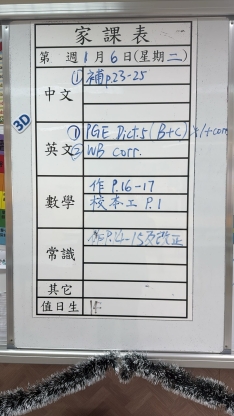 家課表
第 週1月6日(星期二)
3D
中文
①補p23-25
英文
①PGE Dict.5(B+C)
②WB corr.
數學
作P.16-17
校本工P.1
常識
改正
其它
值日生